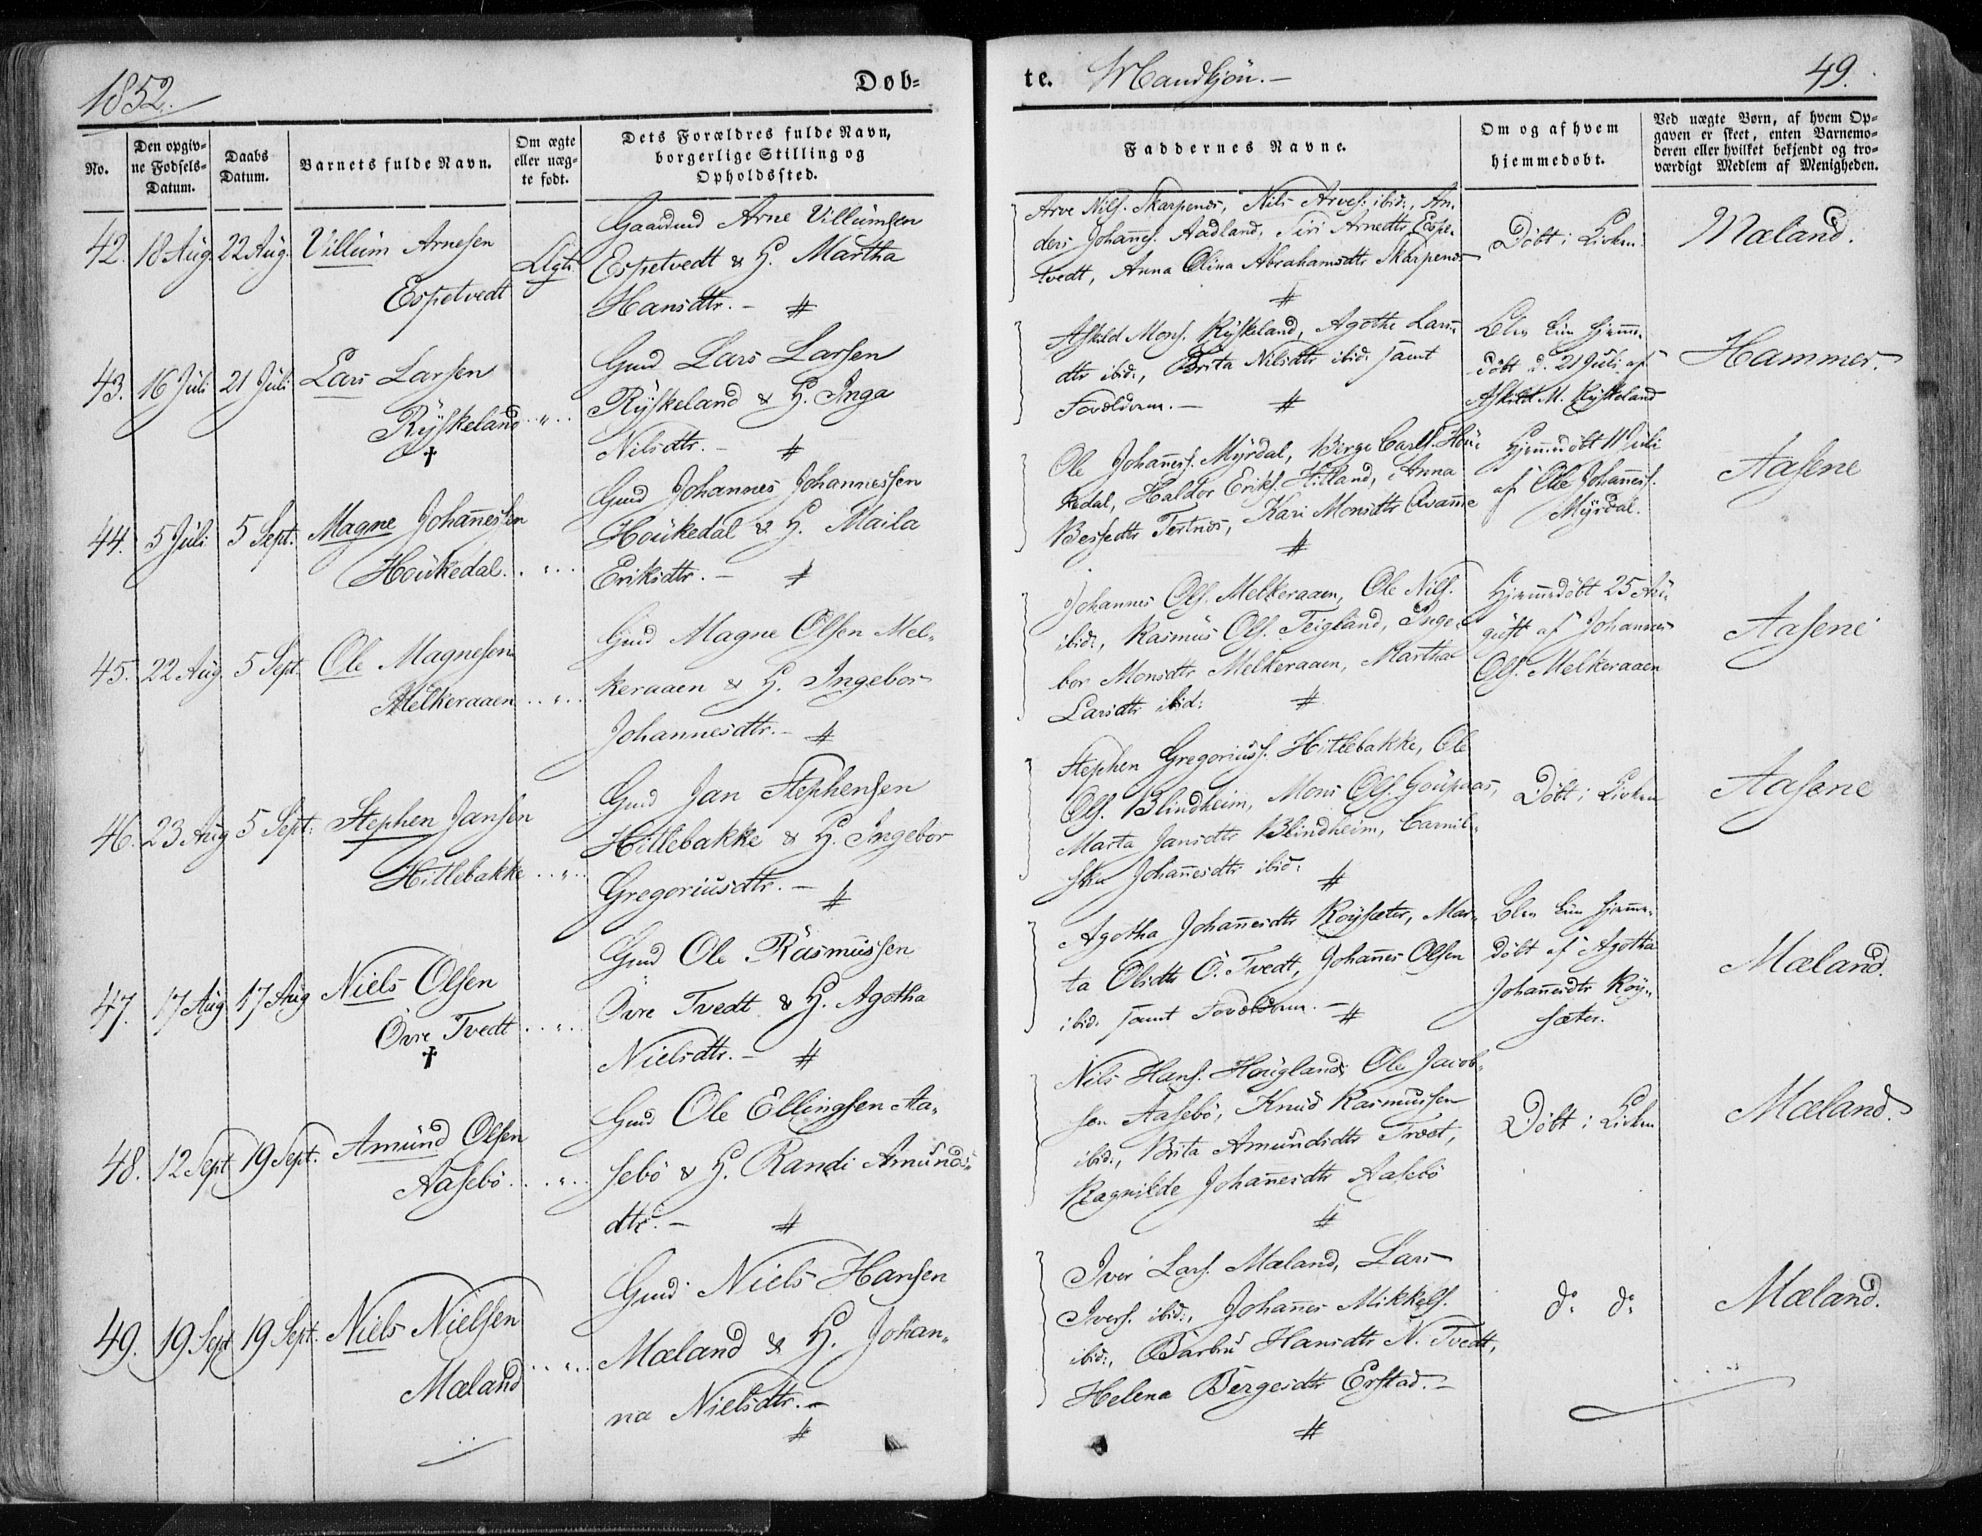 1852.
Døb=
te. Mandkjön. —
49.
No.
Den opgiv=
ne Fødsels=
Datum.
Daabs
Datum.
Barnets fulde Navn.
Om ægte
eller uæg=
te født.
Dets Forældres fulde Navn,
borgerlige Stilling og
Opholdssted.
Faddernes Navne.
Om og af hvem
hjemmedøbt.
Ved uægte Børn, af hvem Op=
gaven er skeet, enten Barnemo=
deren eller hvilket bekjendt og tro=
værdigt Medlem af Menigheden.
42. 18 Aug. 22 Aug. Villum Arnesen
Espetvedt
Ægte
Gaardmd Arne Villumsen
Espetvedt & H. Martha
Hansdtr. —
Arve Nils. Skarpenes, Nils Arves. ibid:, An-
ders Johannes. Aadland, Siri Arnedtr Espe-
tvedt, Anna Olina Abrahamsdtr Skarpenes
Döbt i Kirken
Mæland.
43. 16 Juli 21 Juli Lars Larsen
Ryskeland "
†
Gmd Lars Larsen
Ryskeland & H. Inga
Nilsdtr. —
Askild Mons. Ryskeland, Agothe Lars-
dtr ibid:, Brita Nilsdtr ibid: samt
Forældrene. —
Blev kun hjemme-
döbt d. 21 Juli af
Askild M. Ryskeland
Hammer.
44. 5 Juli 5 Sept. Magne Johannessen
Houkedal. "
Gmd Johannes Johannessen
Houkedal & H. Maila
Eriksdtr. —
Ole Johanness. Myrdal, Börge Carls. Hou-
kedal, Haldor Eriks. Hilland, Anna
Bessedtr Tertnes, Kari Monsdtr Qvamme
Hjemmedöbt 11 Juli
af Ole Johanness.
Myrdal.
Aasene
45. 22 Aug. 5 Sept. Ole Magnesen
Melkeraaen "
Gmd Magne Olsen Mel-
keraaen & H. Ingebor
Johannesdtr. —
Johannes Ols. Melkeraaen, Ole Nils.
ibid:, Rasmus Ols. Teigland, Inge-
bor Monsdtr Melkeraaen, Martha
Larsdtr ibid:
Hjemmedöbt 25 Au-
gust af Johannes
Ols. Melkeraaen
Aasene
46. 23 Aug 5 Sept: Stephen Jansen
Hitlebakke "
Gmd Jan Stephensen
Hitlebakke & H. Ingebor
Gregoriusdtr. —
Stephen Gregorius. Hitlebakke, Ole
Ols. Blindheim, Mons Ols. Goupaas,
Marta Jansdtr Blindheim, Carnil-
ska Johannesdtr ibid:
Döbt i Kirken
Aasene
47. 17 Aug 17 Aug Niels Olsen
Övre Tvedt "
†
Gmd Ole Rasmussen
Övre Tvedt & H. Agotha
Nielsdtr. —
Agotha Johannesdtr Röysæter, Mar-
ta Olsdtr Ö. Tvedt, Johannes Olsen
ibid: samt Forældrene. —
Blev kun hjemme-
döbt af Agotha
Johannesdtr Röy-
sæter.
Mæland.
48. 12 Sept 19 Sept. Amund Olsen
Aasebö "
Gmd Ole Ellingsen Aa-
sebö & H. Randi Amunds-
dtr. —
Nils Hans. Hougland, Ole Jacob-
sen Aasebö, Knud Rasmussen
ibid:, Brita Amundsdtr Tvedt,
Ragnilde Johannesdtr Aasebö
Döbt i Kirken
Mæland.
49. 19 Sept 19 Sept. Niels Nielsen
Mæland "
Gmd. Niels Hansen
Mæland & H. Johan-
na Nielsdtr. —
Iver Lars. Mæland, Lars
Ivers. ibid:, Johannes Mikkels.
ibid:, Barbru Hansdtr N. Tvedt,
Helena Börgesdtr Erstad. —
do do
Mæland.